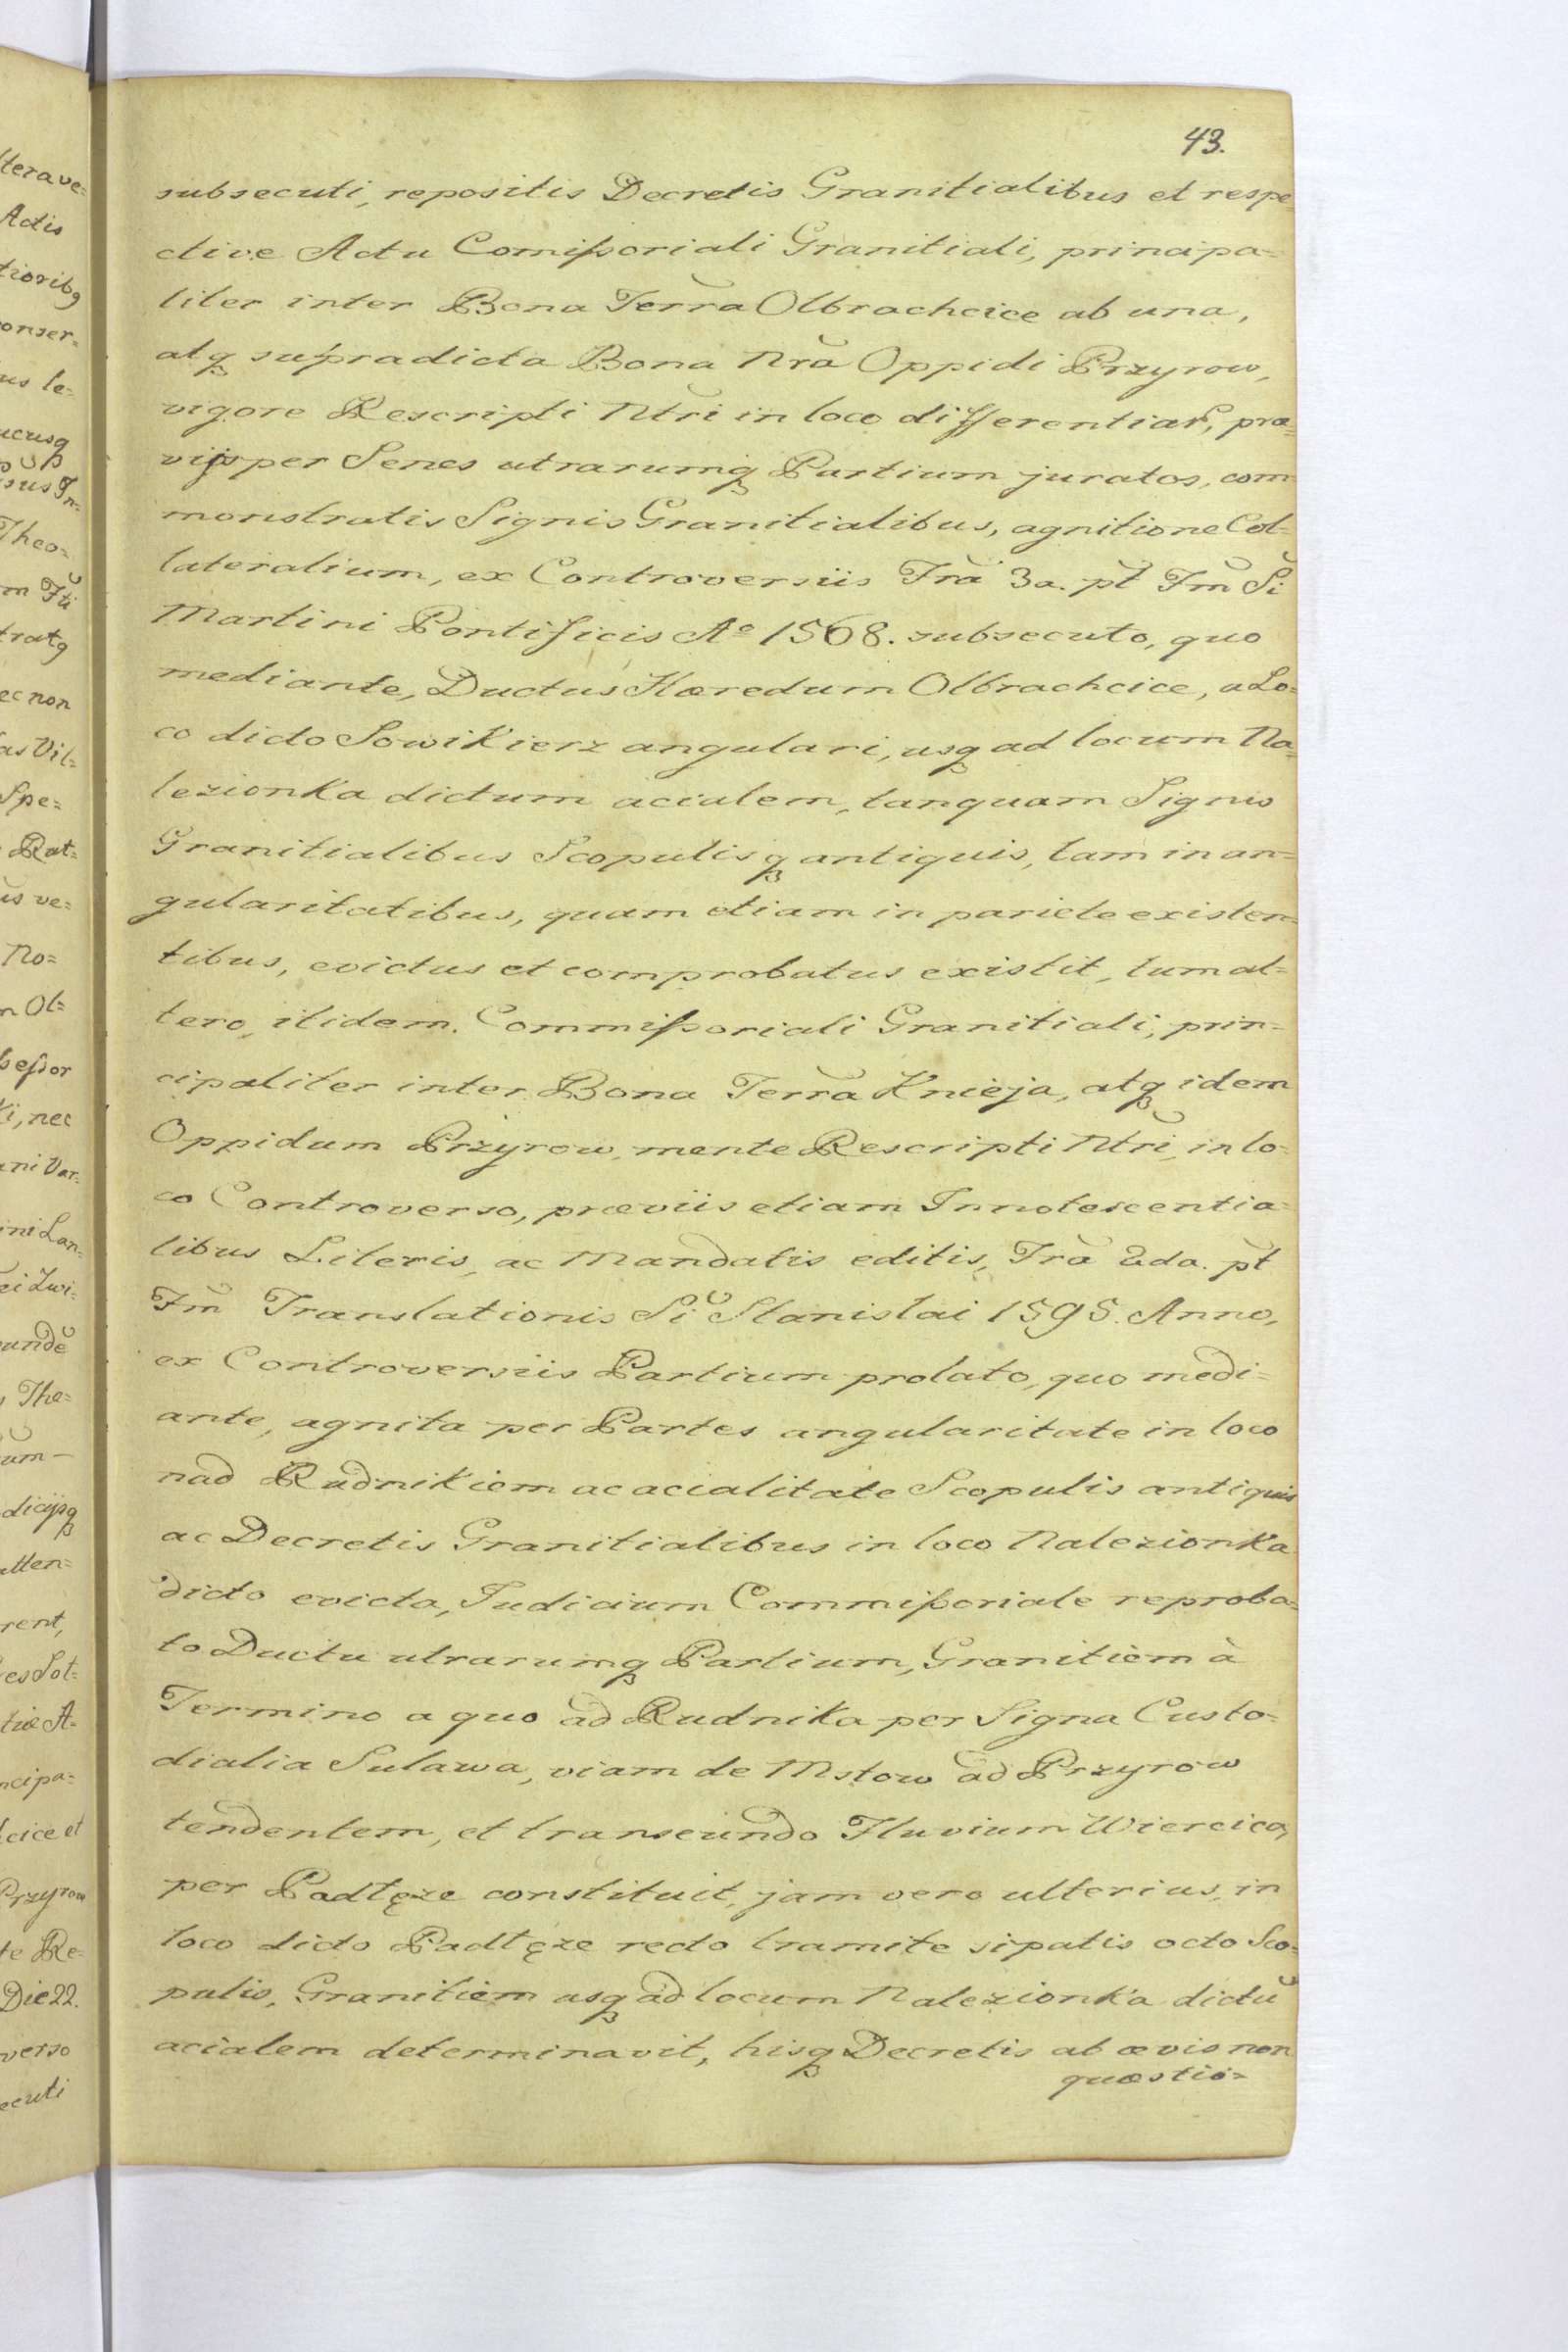 43.
subsecuti, repositis Decretis Granitialibus et respe
ctive Actu Comißoriali Granitiali, principa=
liter inter Bona Terrã Olbrachcice ab una,
atq supradicta Bona Nrã Oppidi Przyrow,
vigore Rescripti Ntri in loco differentiar, præ=
vijs per Senes utrarumq Partium juratos, com=
monstratis Signis Granitialibus, agnitione Col=
lateralium, ex Controversiis Frã 3a. p̃t Fm̃ S̃i
Martini Pontificis Ao 1568. subsecuto, quo
mediante, Ductus Hæredum Olbrachcice, a Lo=
co dicto Sowikierz angulari, usq ad locum Na=
lezionka dictum acialem, tanquam Signis
Granitialibus Scopulisq antiquis, tam in an=
gularitatibus, quam etiam in pariete existen=
tibus, evictus et comprobatus existit, tum al=
tero, itidem Commißoriali Granitiali, prin=
cipaliter inter Bona Terrã Knieja, atq idem
Oppidum Przyrow, mente Rescripti Ntri, in lo=
co Controverso, præviis etiam Innotescentia=
libus Literis, ac Mandatis editis, Frã 2da. p̃t
Fm̃ Translationis S̃i Stanislai 1595. Anno,
ex Controversiis Partium prolato, quo medi=
ante, agnita per Partes angularitate in loco
nad Rudnikiem ac acialitate Scopulis antiquis
ac Decretis Granitialibus in loco Nalezionka
dicto evicta, Judicium Commißoriale reproba=
to Ductu utrarumq Partium, Granitiem à
Termino a quo ad Rudnika per Signa Custo=
dialia Sulawa, viam de Mstow ad Przyrow
tendentem, et transeundo Fluvium Wiercica,
per Padłęże constituit, jam vero ulterius, in
loco dicto Padłęże recto tramite sipatis octo Sco=
pulis, Granitiem usq ad locum Nalezionka dictũ
acialem determinavit, hisq Decretis ab ævis non
quæstio=